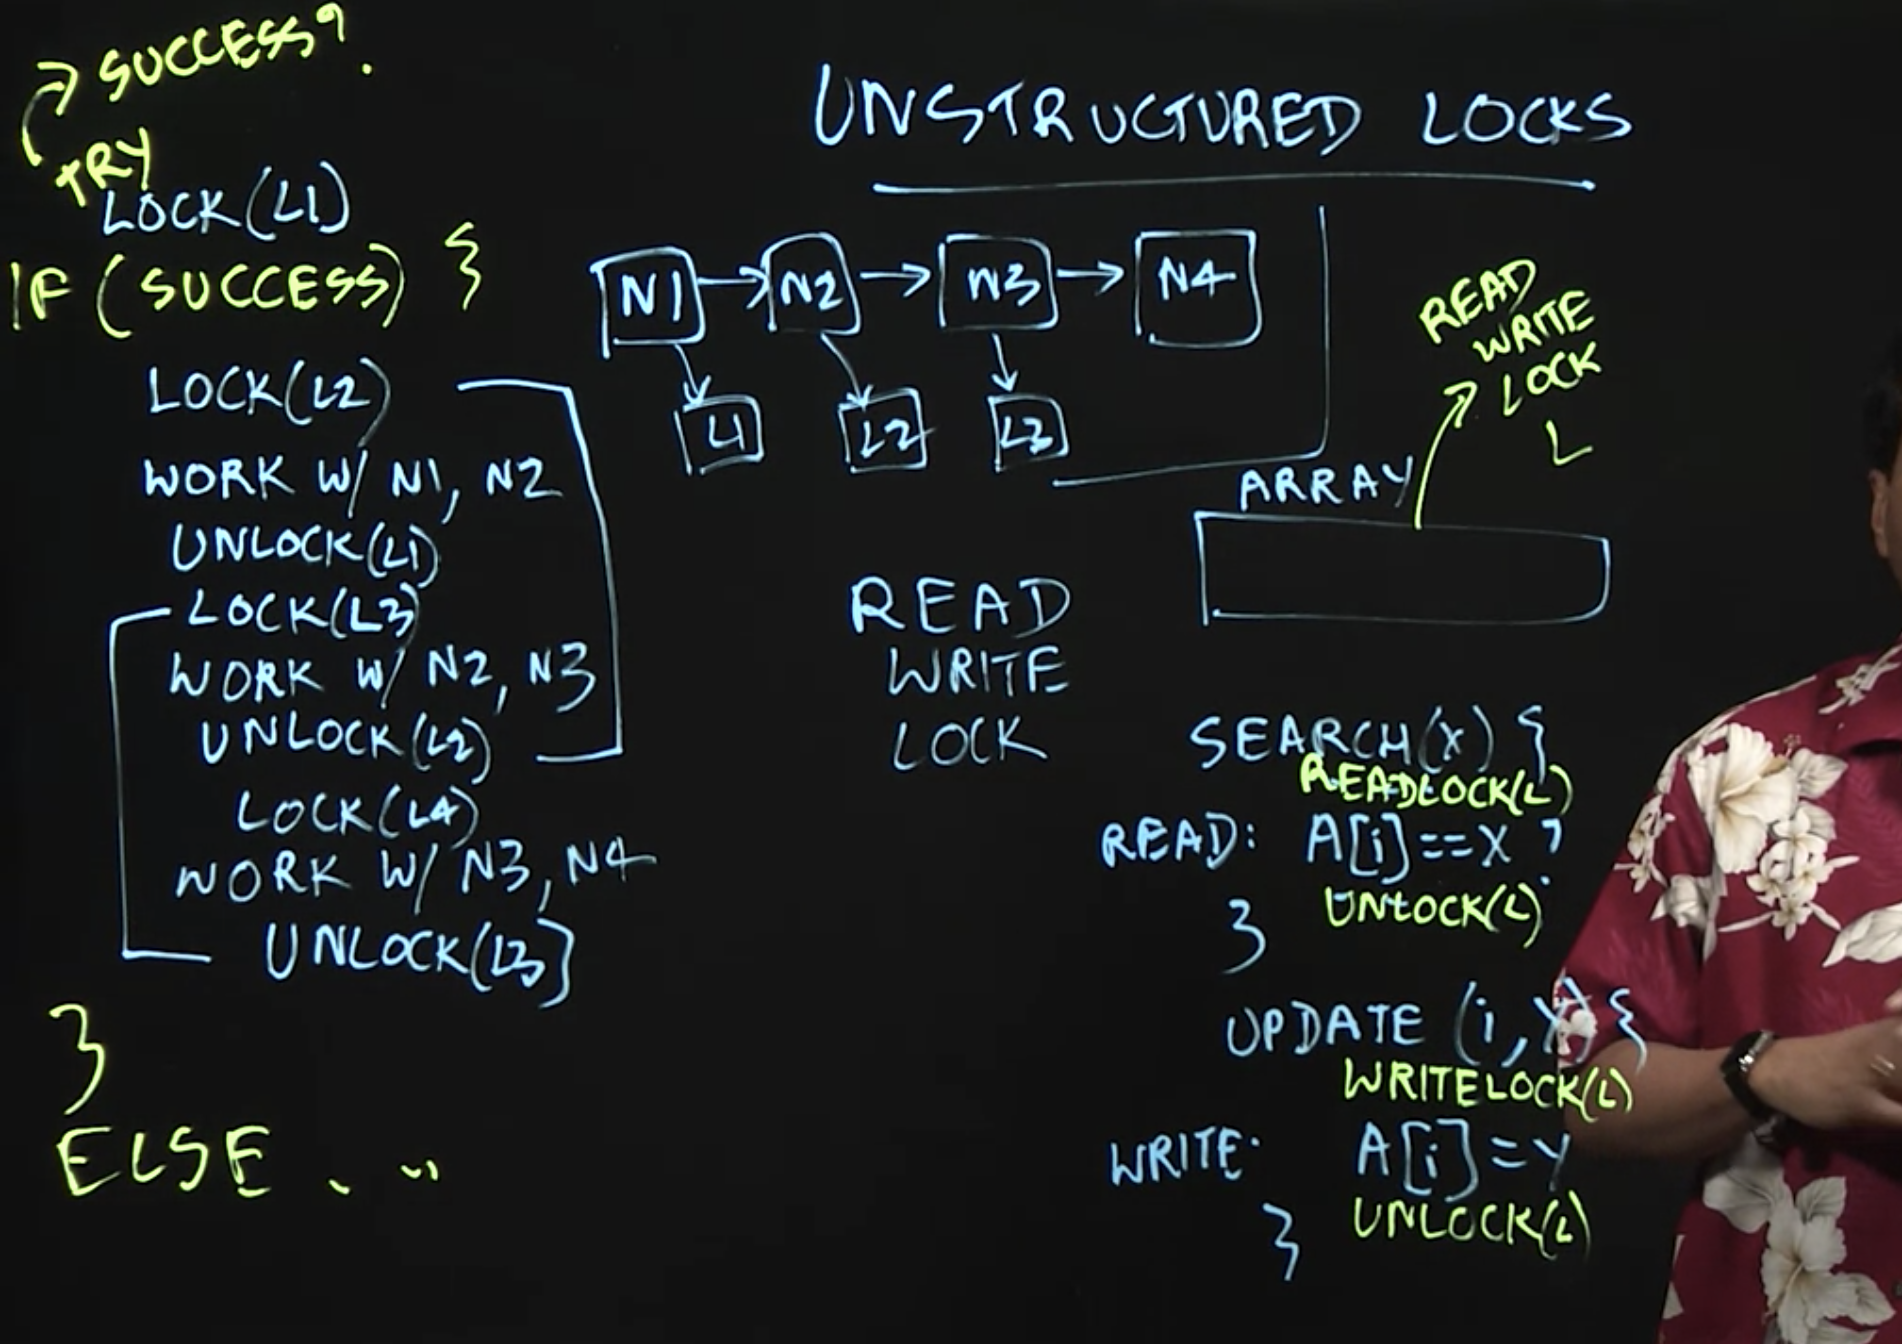 SUCCESS?
TRY
LOCK(L1)
IF (SUCCESS) {
LOCK(L2)
WORK W/ N1, N2
UNLOCK(L1)
LOCK(L3)
WORK W/ N2, N3
UNLOCK(L2)
LOCK(L4)
WORK W/ N3, N4
UNLOCK(L3)
}
ELSE . ...
UNSTRUCTURED LOCKS
N1 N2 N3 N4
L1 L2 L3
READ
WRITE
LOCK
READ
WRITE
LOCK
L
ARRAY
SEARCH(X) {
READLOCK(L)
READ: A[i]==X ?
UNLOCK(L)
}
UPDATE (i,Y) {
WRITELOCK(L)
WRITE: A[i]=Y
UNLOCK(L)
}